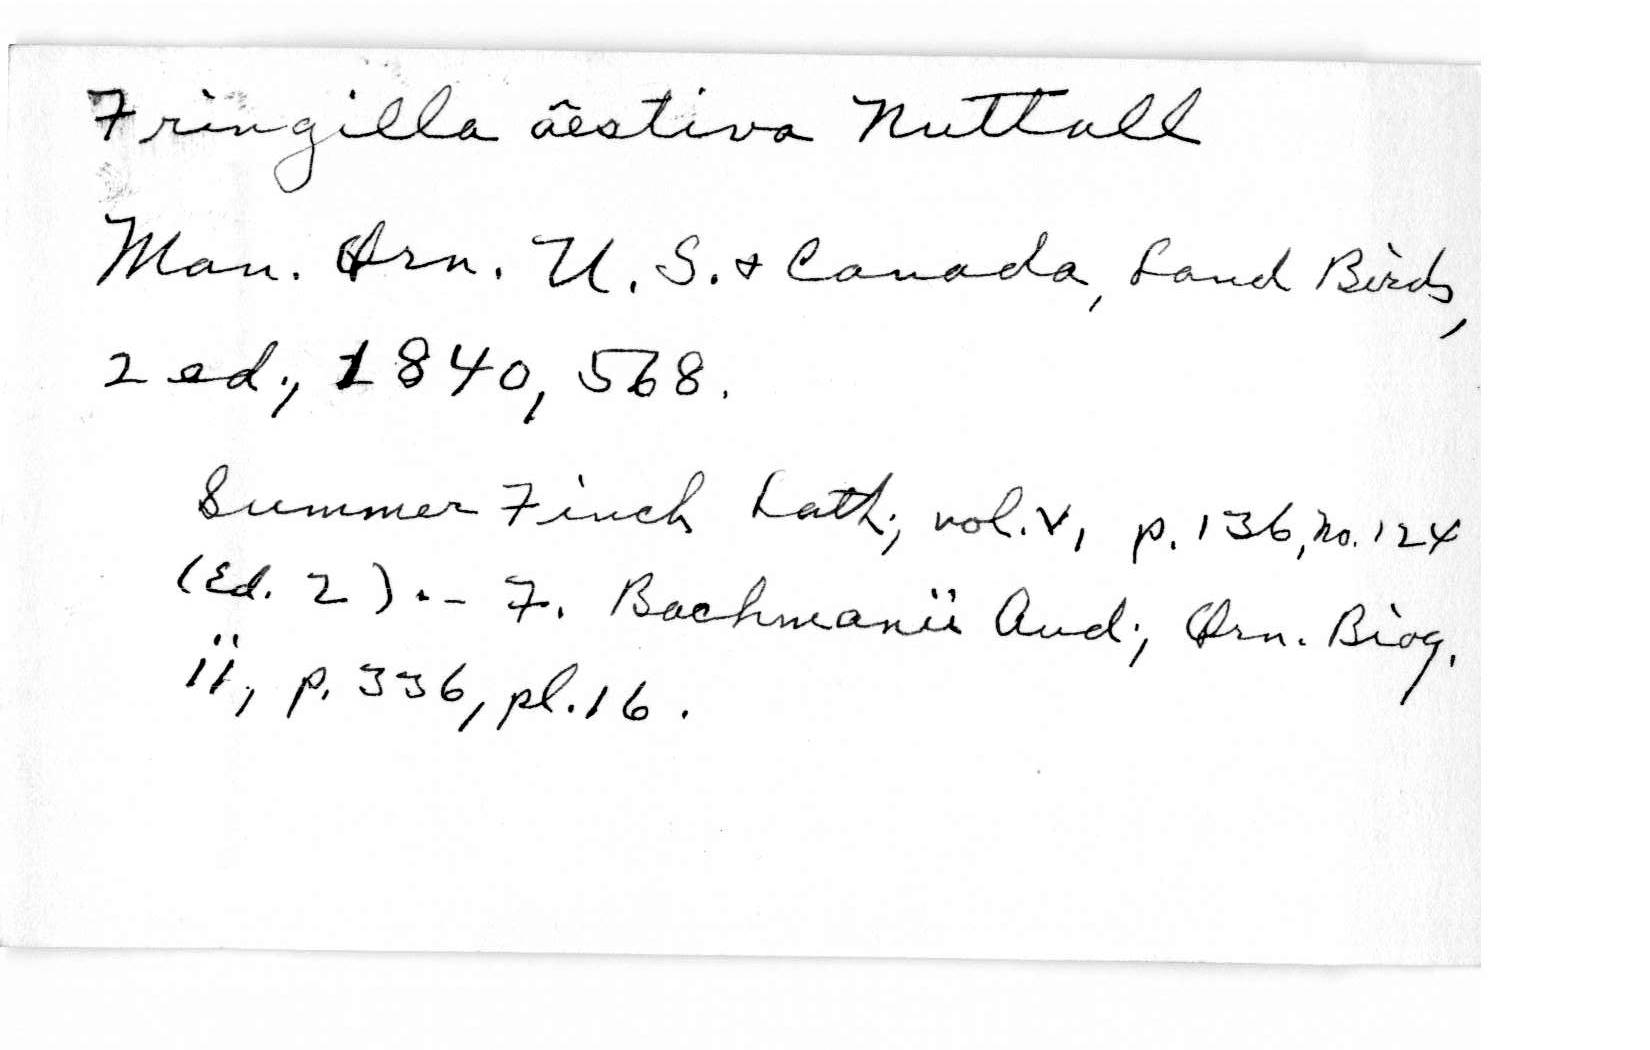 Fringilla äestiva Nuttall
Man. Orn. U. S. & Canada, Land Birds,
2 ed., 1840, 568.
Summer Finch Lath., vol. v, p. 136, no. 124
(Ed. 2). - F. Bachmanii Aud., Orn. Biog.
ii, p. 336, pl. 16.